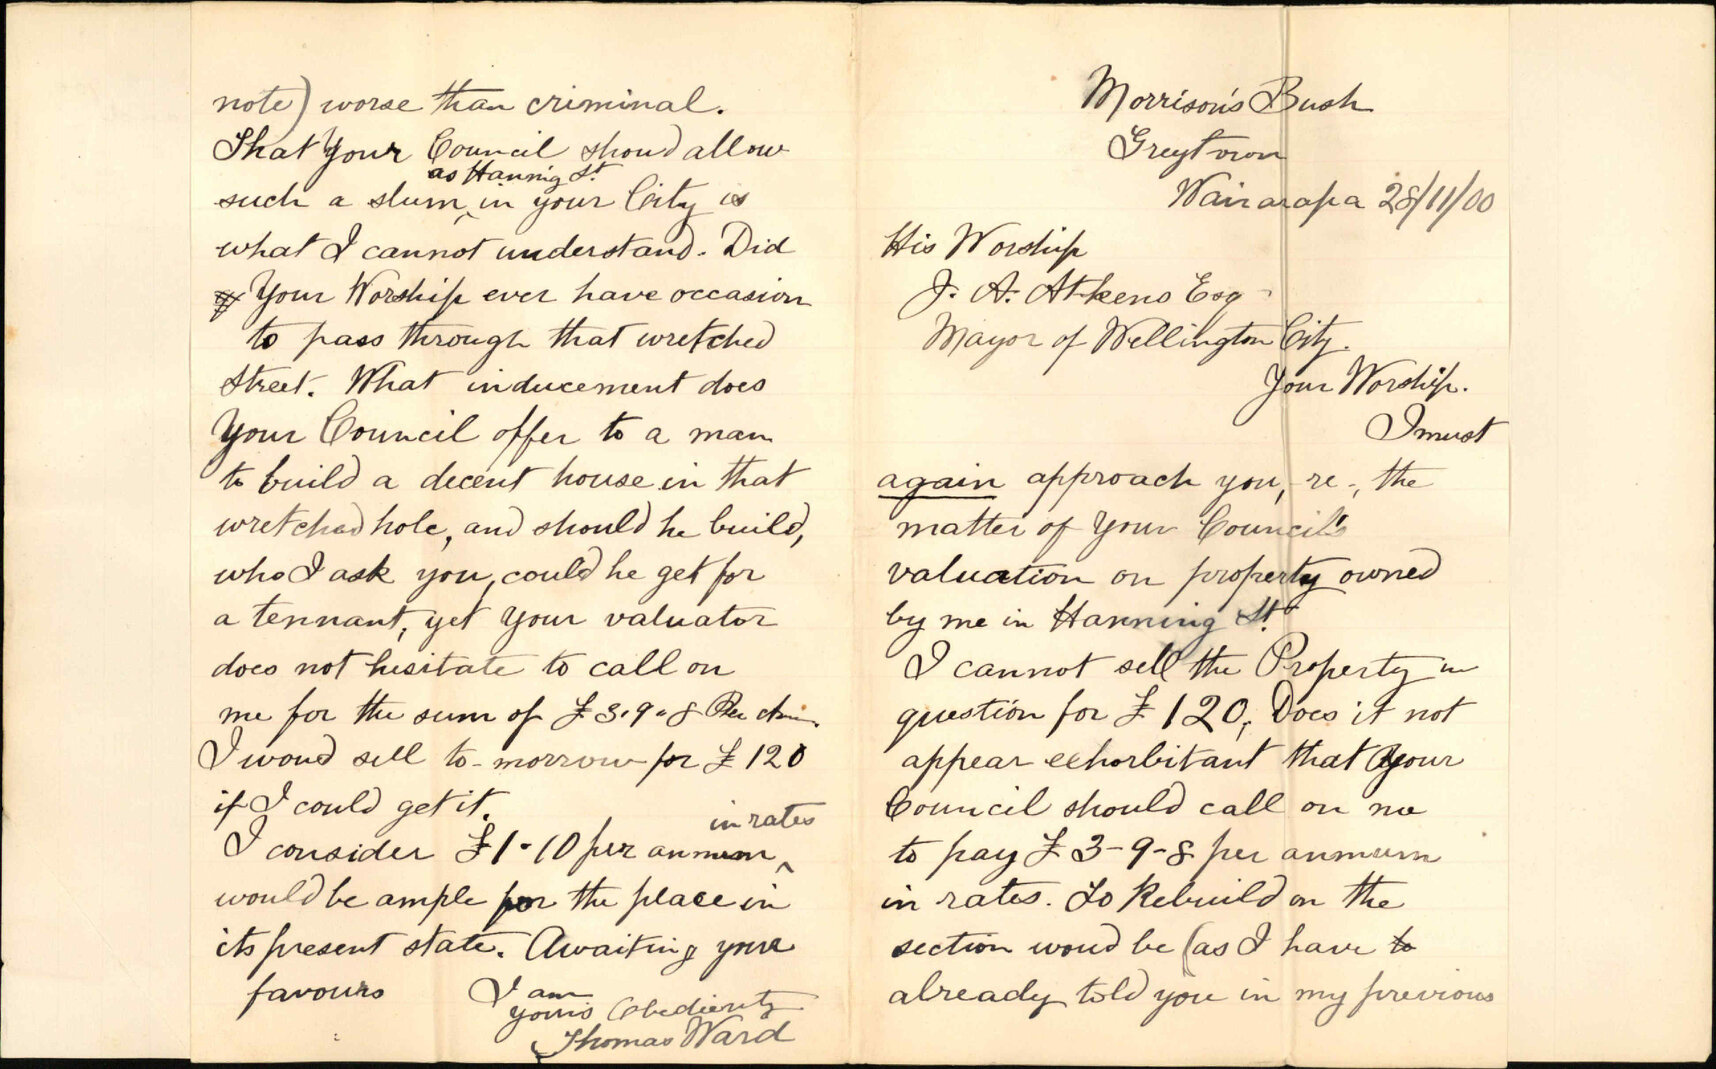 Morrison's Bush
Greytown
Wairarapa 28/11/00
His Worship
J. A. Atkens Esq
Mayor of Wellington City.
Your Worship.
I must
again approach you, re-, the
matter of Your Council's
valuation on property owned
by me in Hanning St.
I cannot sell the Property in
question for £120, Does it not
appear exhorbitant that Your
Council should call on me
to pay £3-9-8 per annum
in rates. To Rebuild on the
section woud be (as I have to
already told you in my previous
note) worse than criminal.
That Your Council shoud allow
as Hannig St.
such a slum ^ in your City is
what I cannot understand. Did
Your Worship ever have occasion
to pass through that wretched
Street. What inducement does
Your Council offer to a man
to build a decent house in that
wretched hole, and should he build,
who I ask you, could he get for
a tennant, yet Your valuator
does not hesitate to call on
me for the sum of £3-9-8 Per Ann.
I woud sell to-morrow for £120
if I could get it.
in rates
I consider £1-10 per annum ^
would be ample for the place in
its present state. Awaiting your
favours
I am
yours Obediently
Thomas Ward